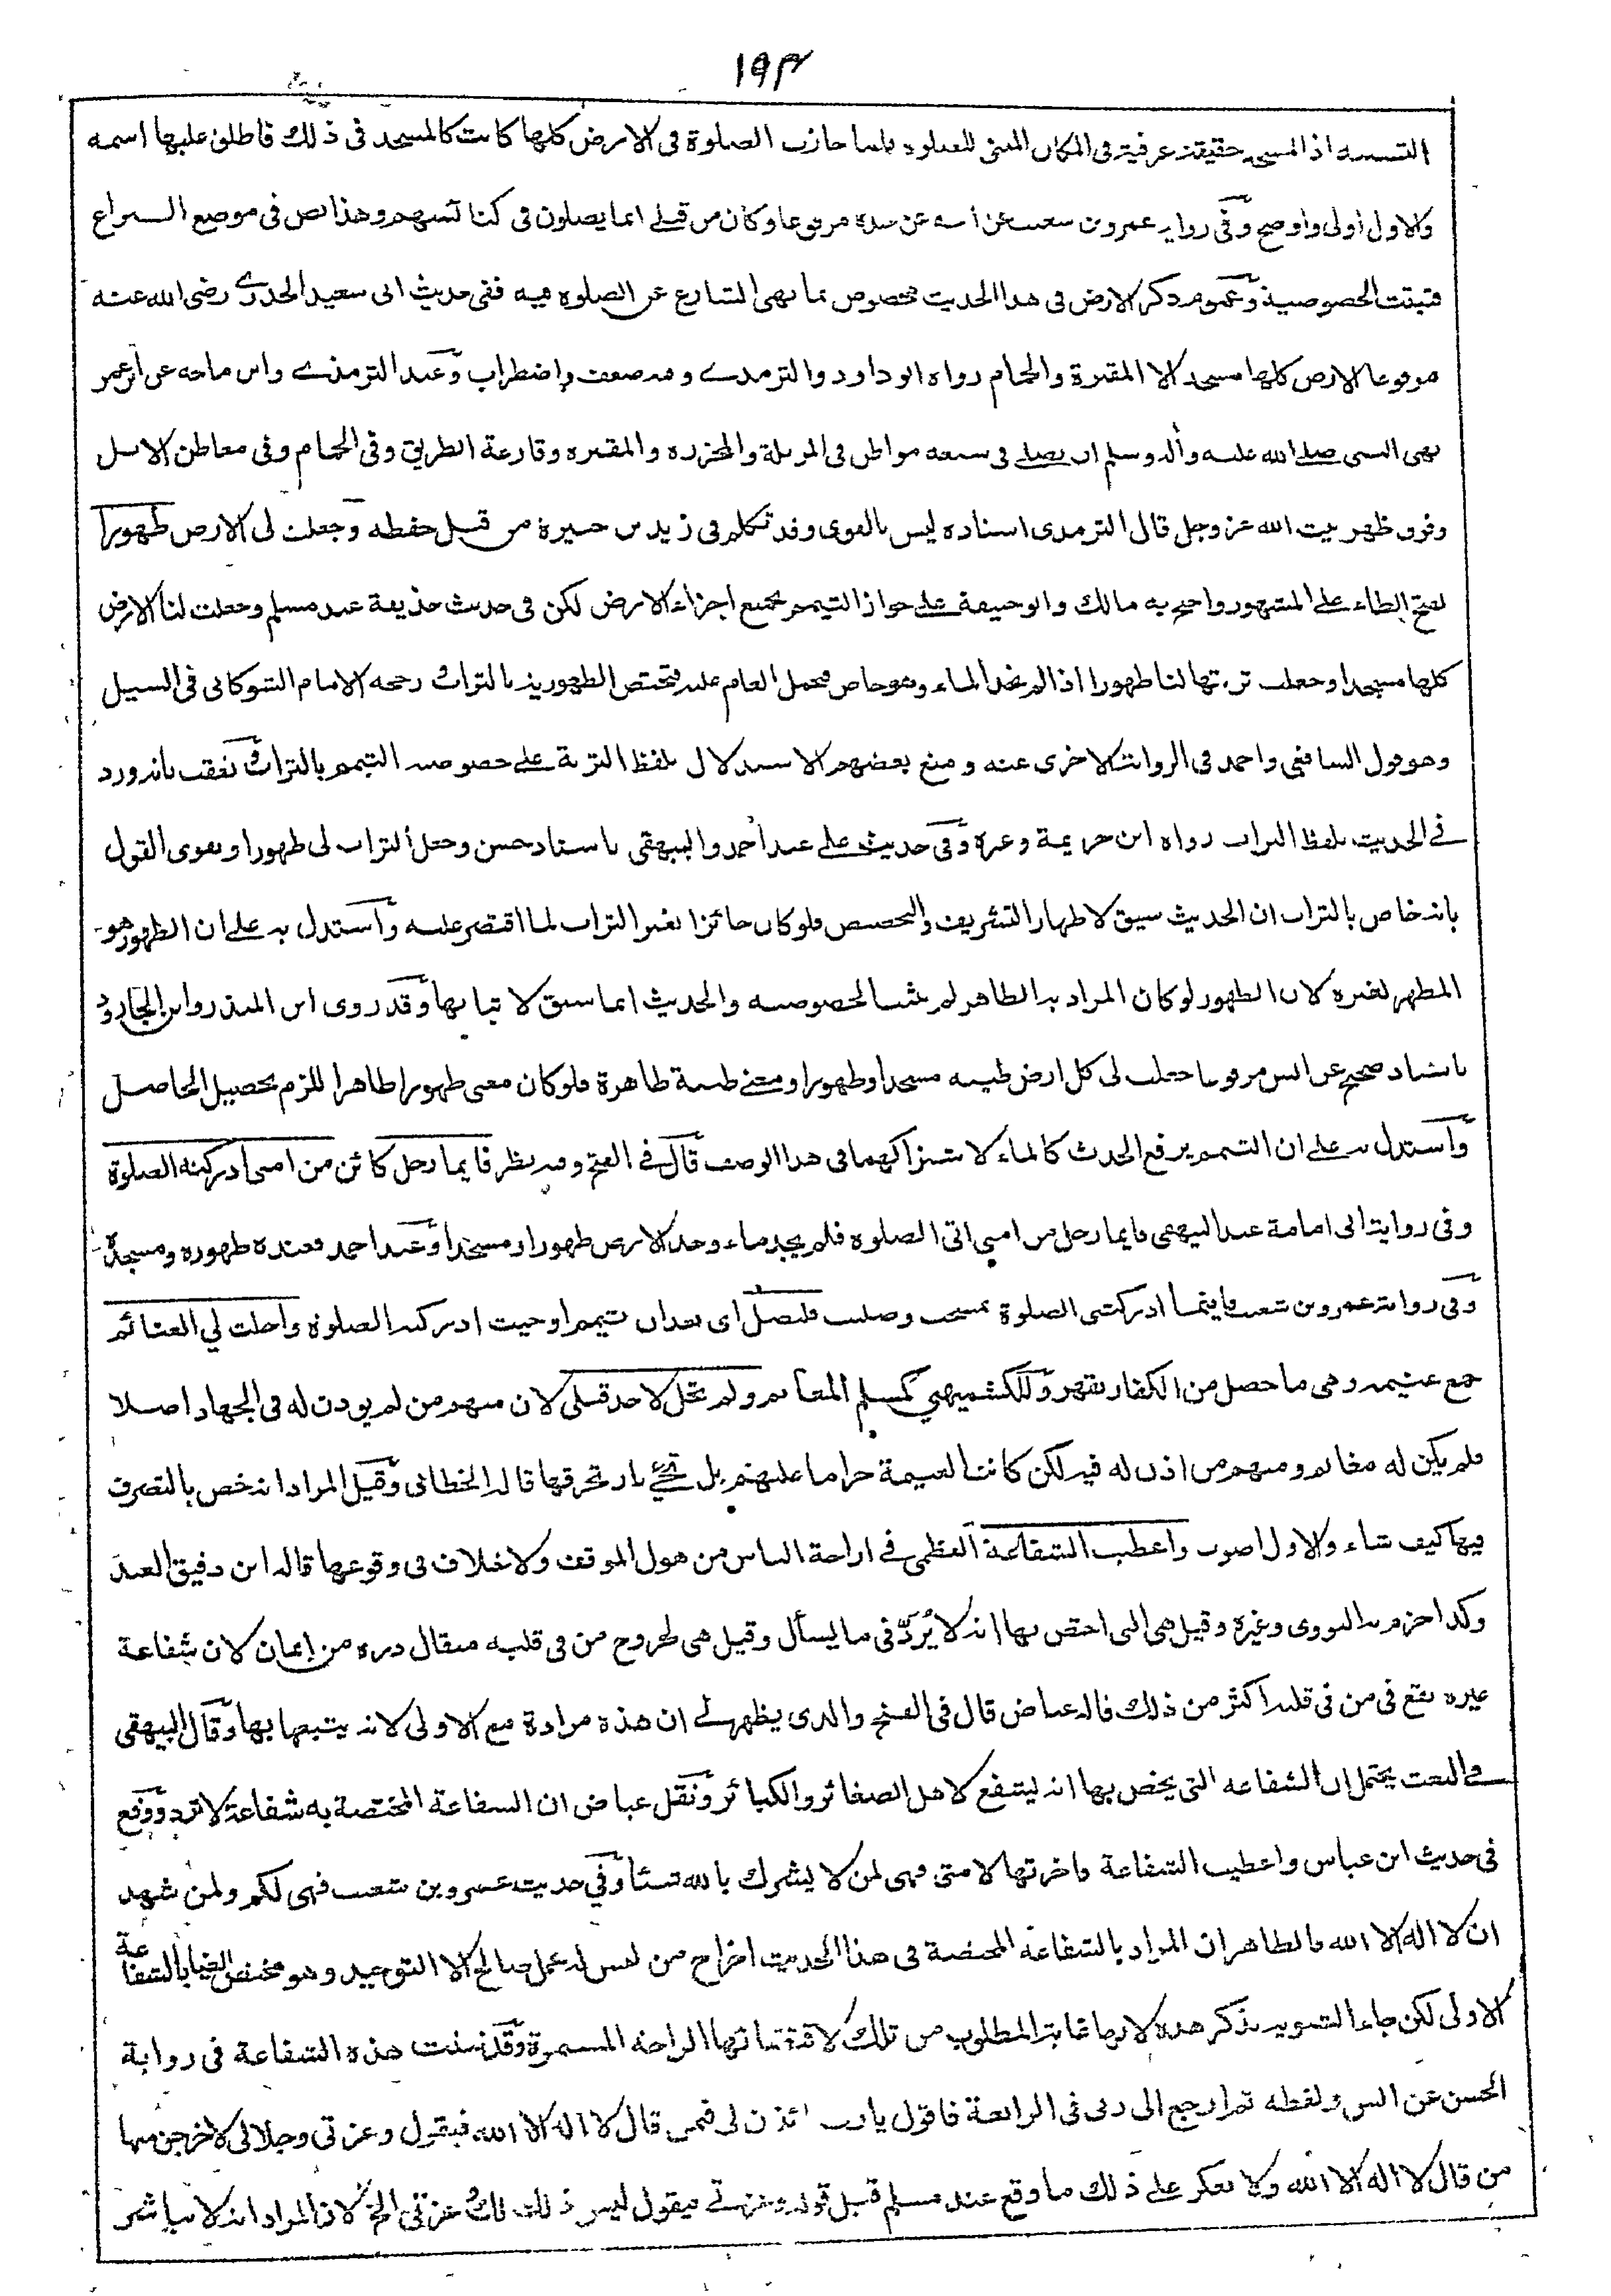 ١٩٣
التشبيه اذ المسجد حقيقة عرفية فى المكان المبنى للصلوة فلما جازت الصلوة فى الارض كلها كانت كالمسجد فى ذلك فاطلق عليها اسمه
والاول اولى واوضح وفى رواية عمرو بن شعيب عن ابيه عن جده مرفوعا وكان من قبلى انما يصلون فى كنائسهم وهذا نص فى موضع النزاع
فثبتت الخصوصية وعموم ذكر الارض فى هذا الحديث مخصوص بما نهى الشارع عن الصلوة فيه ففى حديث ابى سعيد الخدرى رضى الله عنه
مرفوعا الارض كلها مسجد الا المقبرة والحمام رواه ابو داود والترمذى وفيه ضعف واضطراب وعند الترمذى وابن ماجه عن ابن عمر
نهى النبى صلى الله عليه وآله وسلم ان يصلى فى سبعة مواطن فى المزبلة والمجزرة والمقبرة وقارعة الطريق وفى الحمام وفى معاطن الابل
وفوق ظهر بيت الله عز وجل قال الترمذى اسناده ليس بالقوى وقد تكلم فى زيد بن جبيرة من قبل حفظه وجعلت لى الارض طهورا
بفتح الطاء على المشهور واحتج به مالك وابو حنيفة على جواز التيمم بجميع اجزاء الارض لكن فى حديث حذيفة عند مسلم وجعلت لنا الارض
كلها مسجدا وجعلت تربتها لنا طهورا اذا لم نجد الماء وهو خاص فيحمل العام عليه فتختص الطهورية بالتراب رجحه الامام الشوكانى فى السيل
وهو قول الشافعى واحمد فى الرواية الاخرى عنه ومنع بعضهم الاستدلال بلفظ التربة على خصوصية التيمم بالتراب وتعقب بانه ورد
فى الحديث بلفظ التراب رواه ابن خزيمة وغيره وفى حديث على عند احمد والبيهقى باسناد حسن وجعل التراب لى طهورا ويقوى القول
بانه خاص بالتراب ان الحديث سيق لاظهار التشريف والتخصيص فلو كان جائزا بغير التراب لما اقتصر عليه واستدل به على ان الطهور هو
المطهر لغيره لان الطهور لو كان المراد به الطاهر لم تثبت الخصوصية والحديث انما سيق لاثباتها وقد روى ابن المنذر وابن الجارود
باسناد صحيح عن انس مرفوعا جعلت لى كل ارض طيبة مسجدا وطهورا ومعنى طيبة طاهرة فلو كان معنى طهورا طاهرا للزم تحصيل الحاصل
واستدل به على ان التيمم يرفع الحدث كالماء لاشتراكهما فى هذا الوصف قال فى الفتح وفيه نظر فايما رجل كائن من امتى ادركته الصلوة
وفى رواية ابى امامة عند البيهقى فايما رجل من امتى اتى الصلوة فلم يجد ماء وجد الارض طهورا ومسجدا وعند احمد فعنده طهوره ومسجده
وفى رواية عمرو بن شعيب فاينما ادركتنى الصلوة تمسحت وصليت فليصل اى بعد ان تيمم او حيث ادركته الصلوة واحلت لي الغنائم
جمع غنيمة وهى ما حصل من الكفار بقهر وللكشميهنى كمسلم المغانم ولم تحل لاحد قبلى لان منهم من لم يوذن له فى الجهاد اصلا
فلم يكن له مغانم ومنهم من اذن له فيه لكن كانت الغنيمة حراما عليهم بل تجئ نار تحرقها قاله الخطابى وقيل المراد انه خص بالتصرف
فيها كيف شاء والاول اصوب واعطيت الشفاعة العظمى فى اراحة الناس من هول الموقف ولا خلاف فى وقوعها قاله ابن دقيق العيد
وكذا جزم به النووى وغيره وقيل هى التى اختص بها انه لا يُرَدّ فى ما يسأل وقيل هى لخروج من فى قلبه مثقال ذره من ايمان لان شفاعة
غيره تقع فى من فى قلبه اكثر من ذلك قاله عياض قال فى الفتح والذى يظهر لى ان هذه مرادة مع الاولى لانه يتبعها بها وقال البيهقى
فى البعث يحتمل ان الشفاعة التى يخص بها انه ليشفع لاهل الصغائر والكبائر ونقل عياض ان الشفاعة المختصة به شفاعة لا ترد ووقع
فى حديث ابن عباس واعطيت الشفاعة فاخرتها لامتى فهى لمن لا يشرك بالله شيئا وفى حديث عمرو بن شعيب فهى لكم ولمن شهد
ان لا اله الا الله فالظاهر ان المراد بالشفاعة المختصة فى هذا الحديث اخراج من ليس له عمل صالح الا التوحيد وهو مختص ايضا بالشفاعة
الاولى لكن جاء التنويه بذكر هذه لانها غاية المطلوب من تلك لاقتضائها الراحة المستمرة وقد ثبتت هذه الشفاعة فى رواية
الحسن عن انس ولفظه ثم ارجع الى ربى فى الرابعة فاقول يارب ائذن لى فيمن قال لا اله الا الله فيقول وعزتى وجلالى لاخرجن منها
من قال لا اله الا الله ولا يعكر على ذلك ما وقع عند مسلم قبل قوله وعزتى فيقول ليس ذلك لك وعزتى الخ لان المراد انه لا يباشر